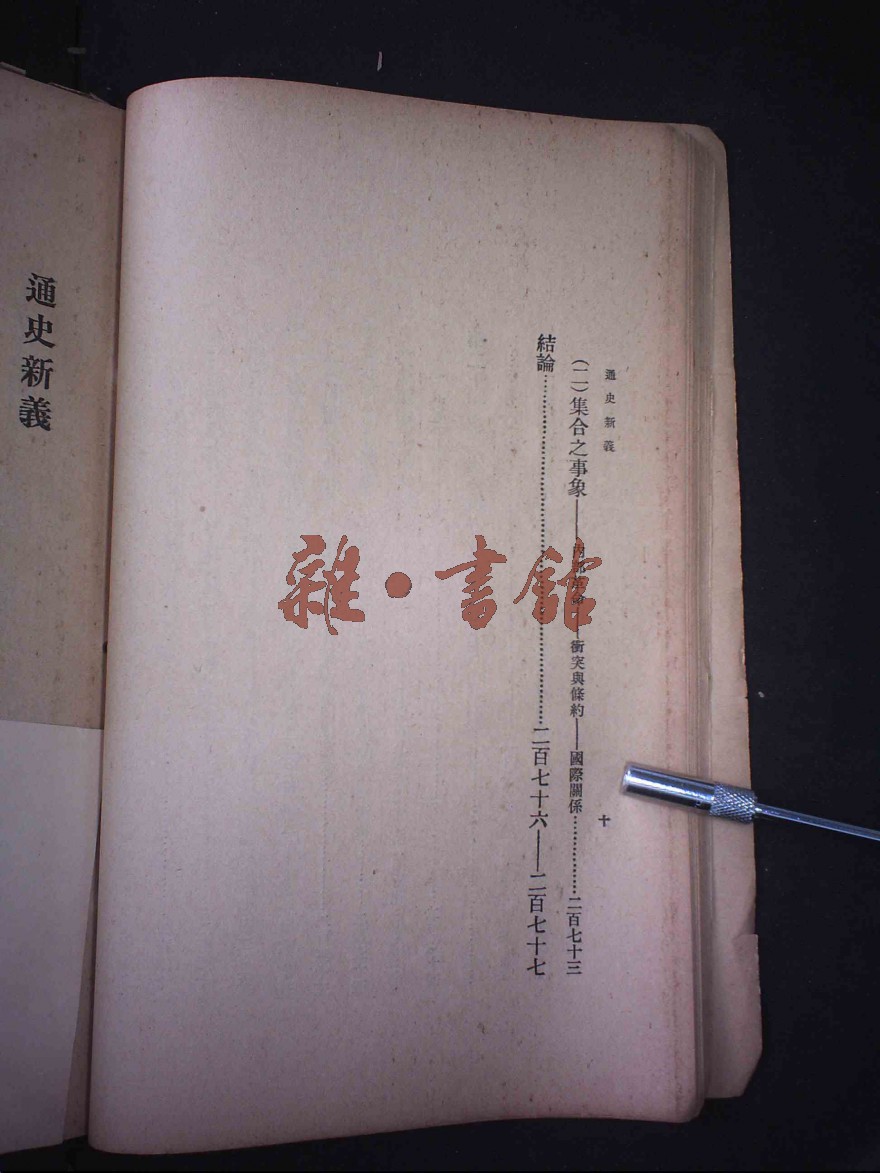 通史新義
十
(二)集合之事象——內部革命——衝突與條約——國際關係……………二百七十三
結論……………………………………………二百七十六——二百七十七
雜·書館
通史新義